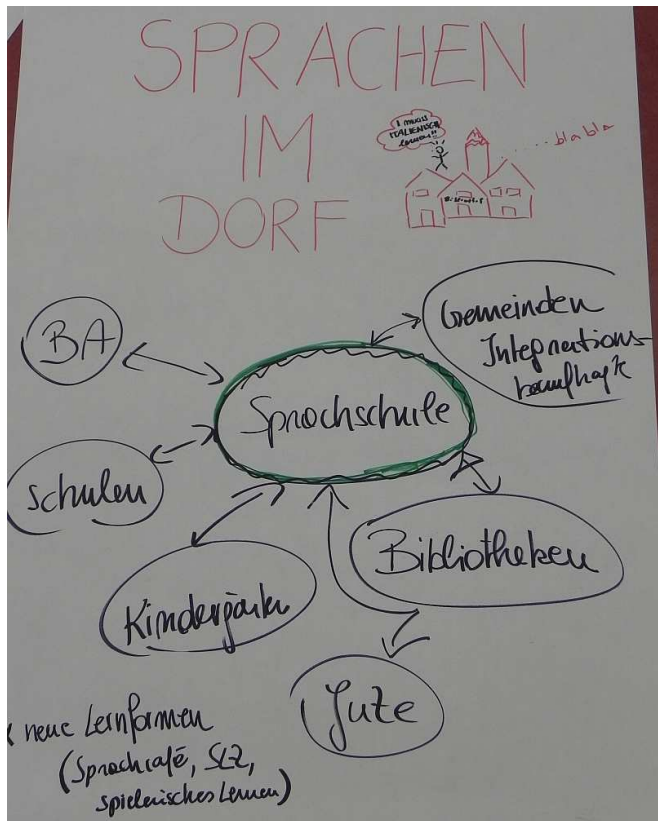 SPRACHEN
IM
DORF
I muass
ITALIENISCH
lernen!!
bla bla
BA
Gemeinden
Integrations-
beauftragte
Sprachschule
Schulen
Bibliotheken
Kindergärten
Juze
neue Lernformen
(Sprachcafé, SLZ,
spielerisches Lernen)